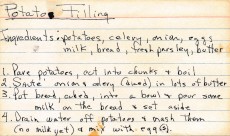 Potato Filling
Ingredients: potatoes, celery, onion, eggs
milk, bread, fresh parsley, butter
1. Pare potatoes, cut into chunks & boil
2. Saute' onions & celery (cubed) in lots of butter
3. Put bread, cubed, into a bowl & pour some
milk on the bread & set aside
4. Drain water off potatoes & mash them
(no milk yet) & mix with egg(s).